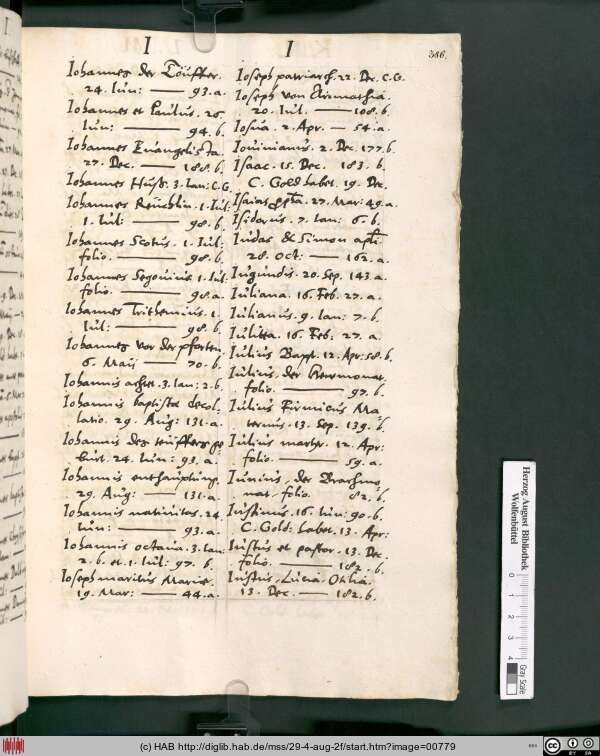 I
I
386.
Iohannes der Töuffer.
24. Iun: 93. a.
Iohannes et Paulus. 26.
Iun: 94. b.
Iohannes Euangelista.
27. Dec. 188. b.
Iohannes Huss. 3. Ian: C. G.
Iohannes Reuchlin. 1. Iul:
1. Iul: 98. b.
Iohannes Scotus. 1. Iul:
folio. 98. b.
Iohannes Segouius. 1. Iul:
folio. 98. a.
Iohannes Trithemius. 1.
Iul: 98. b.
Iohannes von der pforten.
6. Maij 70. b.
Iohannis 3. Ian: 2. b.
Iohannis baptistæ decol-
latio. 29. Aug: 131. a.
Iohannis des teuffers ge
burt. 24. Iun: 93. a.
Iohannis enthauptung.
29. Aug: 131. a.
Iohannis natiuitas. 24.
Iun: 93. a.
Iohannis octaua. 3. Ian:
2. b. et. 1. Iul: 97. b.
Ioseph maritus Mariæ.
19. Mar: 44. a.
Ioseph patriarch. 22. Dec. C. G.
Ioseph von Arimathia.
20. Iul. 108. b.
Iosua. 2. Apr. 54. a.
Iouinianus. 2. Dec. 177. b.
Isaac. 15. Dec. 183. b.
C. Gold habet. 19. Dec.
Isaias 27. Mar: 49. a.
Isidorus. 7. Ian: 6. b.
Iudas & Simon apli
28. Oct: 162. a.
Iugundis. 20. Sep. 143. a.
Iuliana. 16. Feb. 27. a.
Iulianus. 9. Ian: 7. b.
Iulitta. 16. Feb: 27. a.
Iulius Bapst. 12. Apr: 58. b.
Iulius, der
folio. 97. b.
Iulius Firmicus Ma-
ternus. 13. Sep. 139. b.
Iulius martyr. 12. Apr:
folio. 59. a.
Iunius, der Brachmo-
nat, folio. 82. b.
Iustinus. 16. Iun: 90. b.
C. Gold: habet. 13. Apr:
Iustus et pastor. 13. Dec.
folio. 182. b.
Iustus, Lucia. Otilia.
13. Dec. 182. b.
Herzog August Bibliothek
Wolfenbüttel
0 1 2 3 4
Gray Scale
(c) HAB http://diglib.hab.de/mss/29-4-aug-2f/start.htm?image=00779